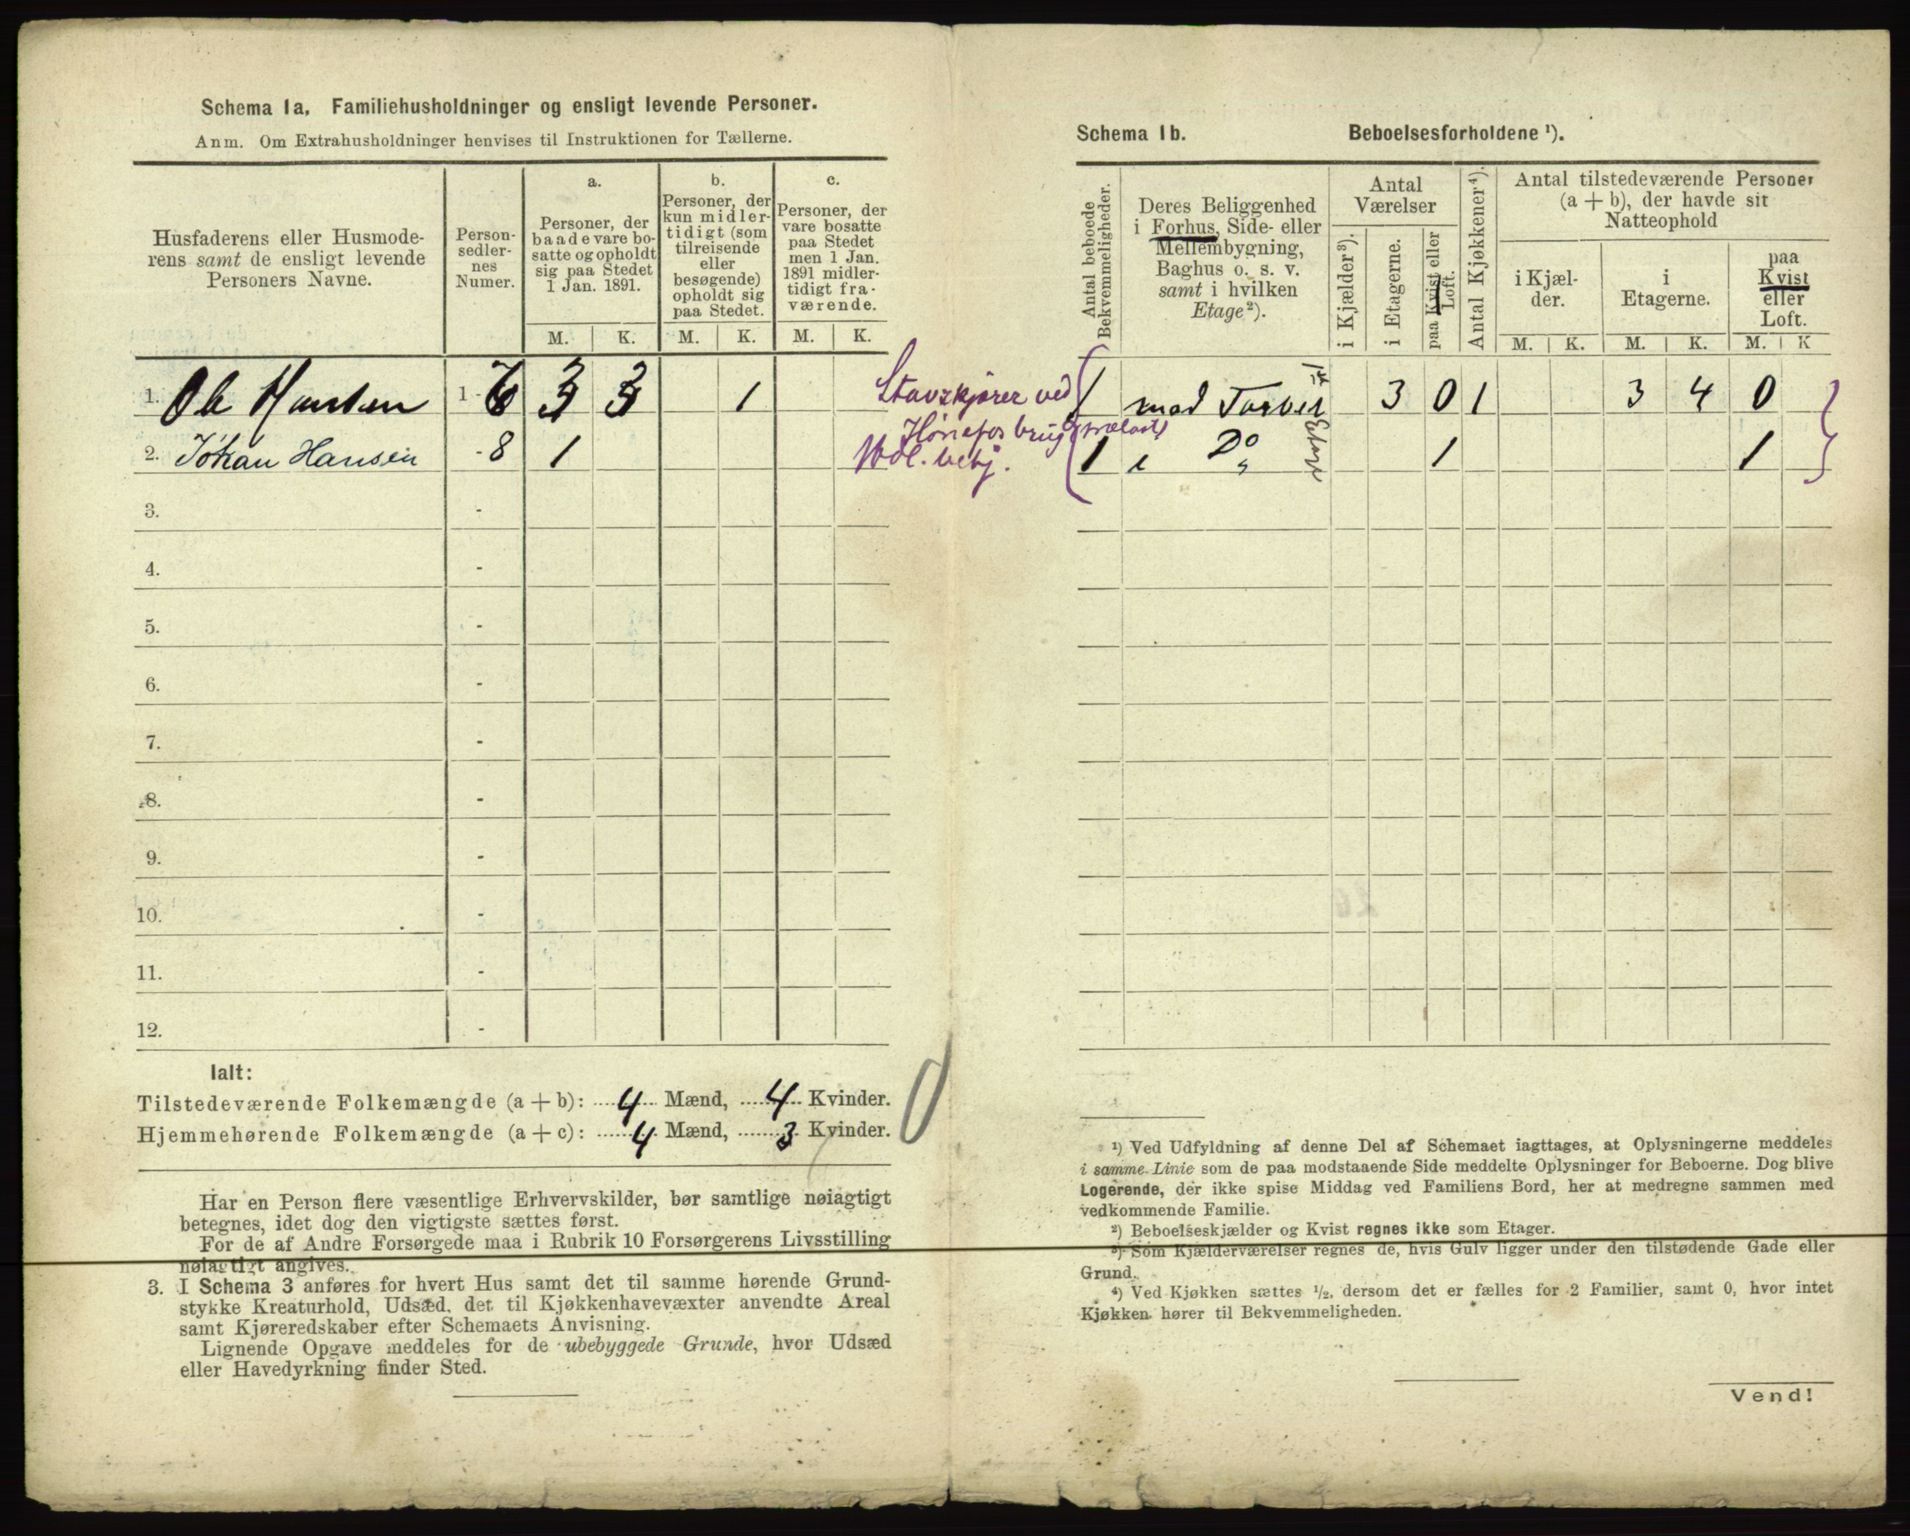 Schema 1a. Familiehusholdninger og ensligt levende Personer.
Anm. Om Extrahusholdninger henvises til Instruktionen for Tællerne.
Husfaderens eller Husmode-
rens samt de ensligt levende
Personers Navne.
Person-
sedler-
nes
Numer.
a.
Personer, der
baade vare bo-
satte og opholdt
sig paa Stedet
1 Jan. 1891.
b.
Personer, der
kun midler-
tidigt (som
tilreisende
eller
besøgende)
opholdt sig
paa Stedet.
c.
Personer, der
vare bosatte
paa Stedet
men 1 Jan.
1891 midler-
tidigt fra-
værende.
M. K. M. K. M. K.
1. Ole Hansen 1 - 3 3 1
2. Johan Hansen - 8 1
3. -
4. -
5. -
6. -
7. -
8. -
9. -
10. -
11. -
12. -
Ialt:
Tilstedeværende Folkemængde (a + b): 4 Mænd, 4 Kvinder.
Hjemmehørende Folkemængde (a + c): 4 Mænd, 3 Kvinder.
Har en Person flere væsentlige Erhvervskilder, bør samtlige nøiagtigt
betegnes, idet dog den vigtigste sættes først.
For de af Andre Forsørgede maa i Rubrik 10 Forsørgerens Livsstilling
nøiagtigt angives.
3. I Schema 3 anføres for hvert Hus samt det til samme hørende Grund-
stykke Kreaturhold, Udsæd, det til Kjøkkenhavevæxter anvendte Areal
samt Kjøreredskaber efter Schemaets Anvisning.
Lignende Opgave meddeles for de ubebyggede Grunde, hvor Udsæd
eller Havedyrkning finder Sted.
Schema 1b. Beboelsesforholdene ¹).
Antal beboede
Bekvemmeligheder.
Deres Beliggenhed
i Forhus, Side- eller
Mellembygning,
Baghus o. s. v.
samt i hvilken
Etage ²).
Antal
Værelser
i Kjælder ³).
i Etagerne.
paa Kvist eller
Loft.
Antal Kjøkkener ⁴).
Antal tilstedeværende Personer
(a + b), der havde sit
Natteophold
i Kjæl-
der.
i
Etagerne.
paa
Kvist
eller
Loft.
M. K. M. K. M. K
ved
1 mod Torvet 3 0 1 3 4 0
Hønefos brug
1 i Do 1 1
¹) Ved Udfyldning af denne Del af Schemaet iagttages, at Oplysningerne meddeles
i samme Linie som de paa modstaaende Side meddelte Oplysninger for Beboerne. Dog blive
Logerende, der ikke spise Middag ved Familiens Bord, her at medregne sammen med
vedkommende Familie.
²) Beboelseskjælder og Kvist regnes ikke som Etager.
³) Som Kjælderværelser regnes de, hvis Gulv ligger under den tilstødende Gade eller
Grund.
⁴) Ved Kjøkken sættes ½, dersom det er fælles for 2 Familier, samt 0, hvor intet
Kjøkken hører til Bekvemmeligheden.
Vend!